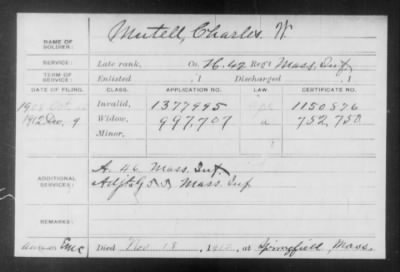 NAME OF SOLDIER: Mutell, Charles H
SERVICE: Late rank, Co. H. 42 Reg't Mass. Inf.
TERM OF SERVICE: Enlisted , 1 Discharged , 1
DATE OF FILING. CLASS. APPLICATION NO. LAW. CERTIFICATE NO.
Oct Invalid, 1377995 1150576
1912, Dec. 9 Widow, 997,707 a 752,750
Minor,
ADDITIONAL SERVICES: A. 46 Mass. Inf.
Mass. Inf
REMARKS:
Died Nov 13, 1912, at Springfield, Mass.